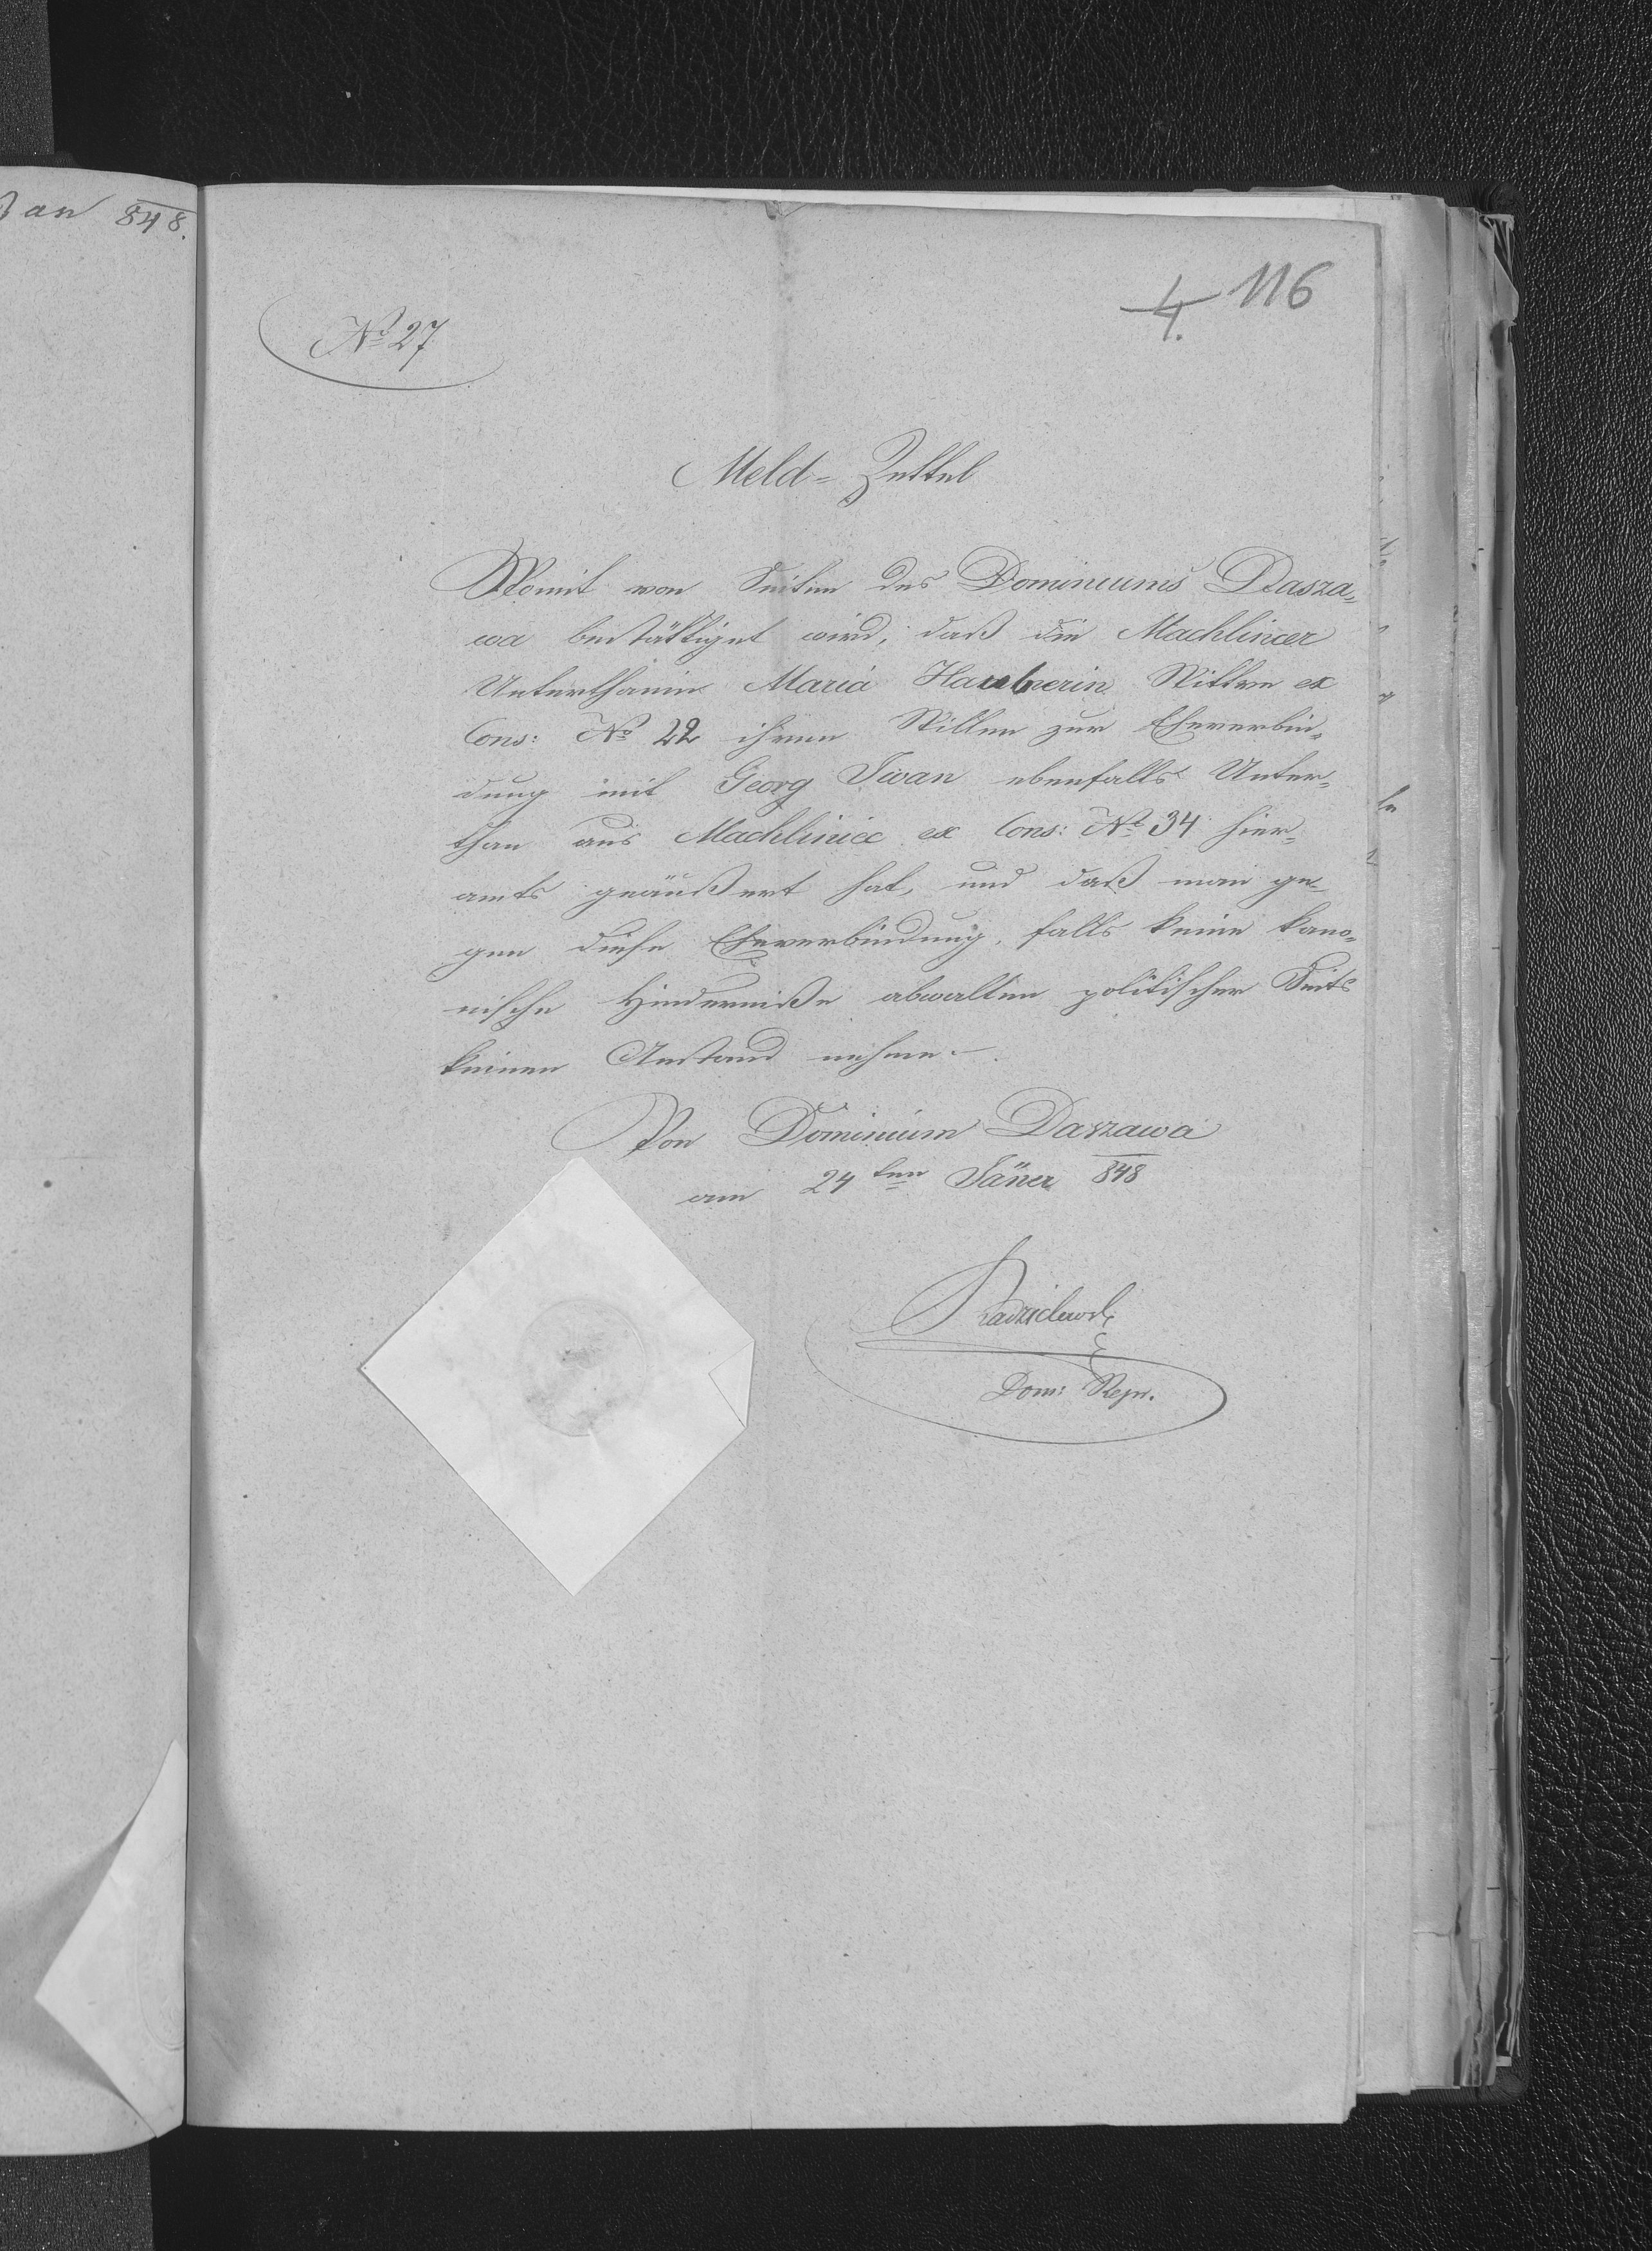 an 848.
116
4.
No 27
Meld= Zettel
Womit von Seiten des Dominiums Dasza=
wa bestättiget wird, daß die Machlincer
Unterthanin Maria Haubnerin Wittwe ex
Cons: No 22 ihren Willen zur Eheverbin=
dung mit Georg Iwan ebenfalls Unter=
than aus Machliniec ex Cons: No 34 hier=
amts geäußert hat, und daß man ge=
gen diese Eheverbindung, falls keine kano=
nische Hinderniße obwalten politischer Seits
keinen Anstand nehme.
Von Dominium Daszawa
am 24ten Jäner 848
Dom: Repr.